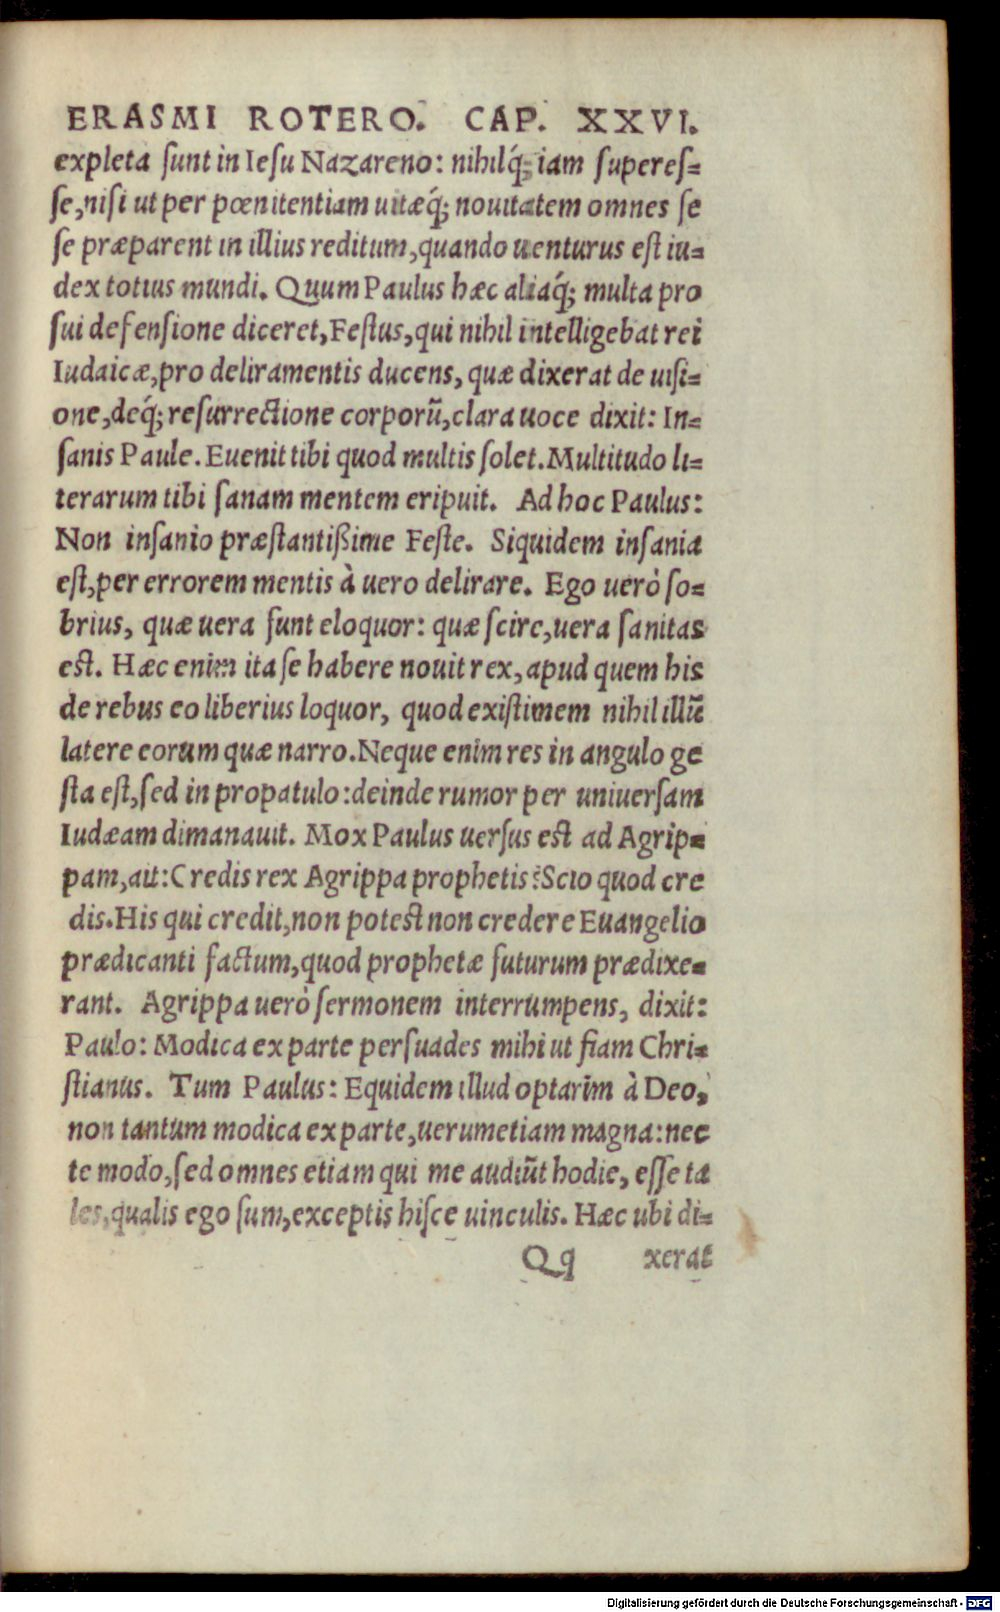 ERASMI ROTERO. CAP. XXVI.
expleta ſunt in Ieſu Nazareno: nihilq́; iam ſupereſ-
ſe, niſi ut per pœnitentiam uitæq́; nouitatem omnes ſe
ſe præparent in illius reditum, quando uenturus eſt iu-
dex totius mundi. Quum Paulus hæc aliaq́; multa pro
ſui defenſione diceret, Feſtus, qui nihil intelligebat rei
Iudaicæ, pro deliramentis ducens, quæ dixerat de uiſi-
one, deq́; reſurrectione corporũ, clara uoce dixit: In-
ſanis Paule. Euenit tibi quod multis ſolet. Multitudo li-
terarum tibi ſanam mentem eripuit. Ad hoc Paulus:
Non inſanio præſtantißime Feſte. Siquidem inſania
eſt, per errorem mentis à uero delirare. Ego uerò ſo-
brius, quæ uera ſunt eloquor: quæ ſcire, uera ſanitas
eſt. Hæc enim ita ſe habere nouit rex, apud quem his
de rebus eo liberius loquor, quod exiſtimem nihil illũ
latere eorum quæ narro. Neque enim res in angulo ge
ſta eſt, ſed in propatulo: deinde rumor per uniuerſam
Iudæam dimanauit. Mox Paulus uerſus eſt ad Agrip-
pam, ait: Credis rex Agrippa prophetis? Scio quod cre
dis. His qui credit, non poteſt non credere Euangelio
prædicanti factum, quod prophetæ futurum prædixe-
rant. Agrippa uerò ſermonem interrumpens, dixit:
Paulo: Modica ex parte perſuades mihi ut fiam Chri-
ſtianus. Tum Paulus: Equidem illud optarim à Deo,
non tantum modica ex parte, uerumetiam magna: nec
te modo, ſed omnes etiam qui me audiũt hodie, eſſe ta
les, qualis ego ſum, exceptis hiſce uinculis. Hæc ubi di-
Qq xerat
Digitalisierung gefördert durch die Deutsche Forschungsgemeinschaft - DFG